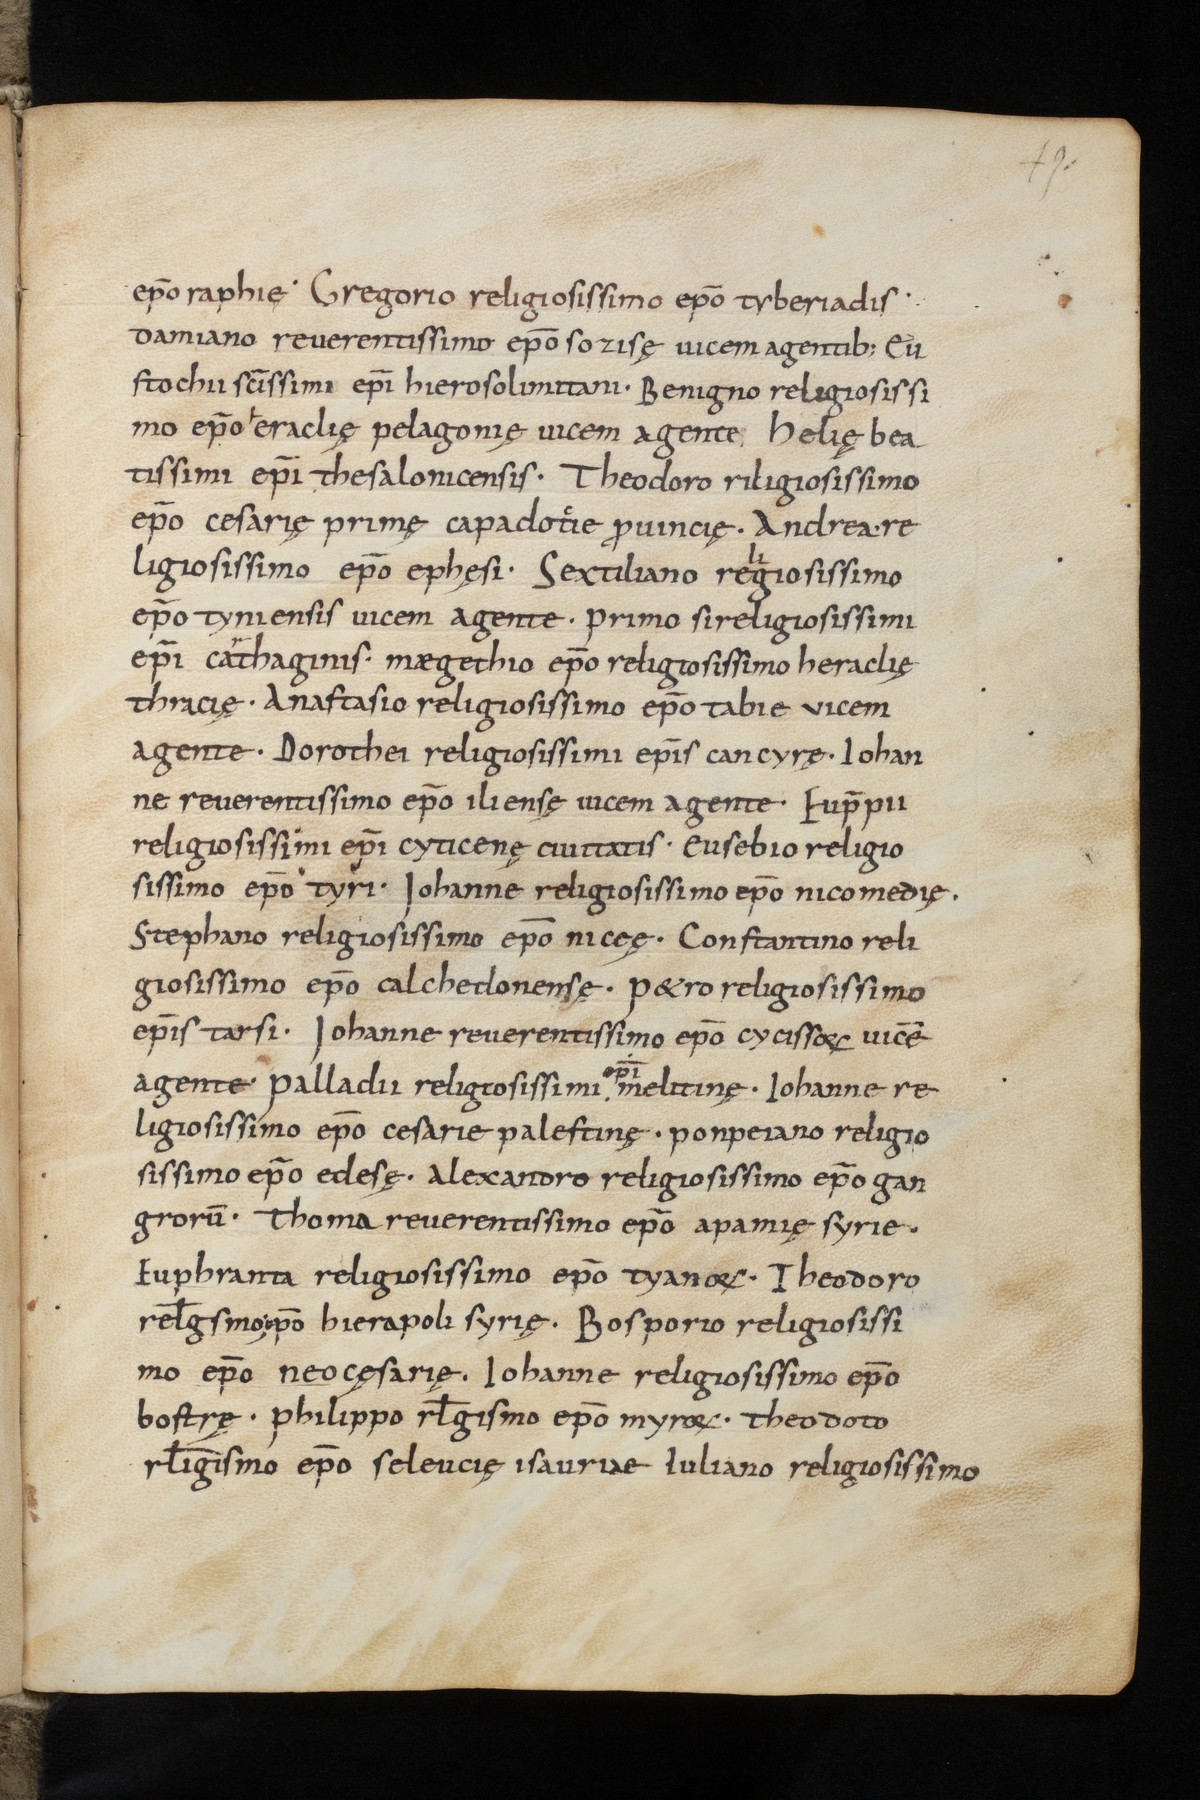 49.
ep̄o raphię· Gregorio religiosissimo ep̄o tyberiadis·
damiano reuerentissimo ep̄o sozisę uicem agentib; Eu
stochii sc̄issimi ep̄i hierosolimitani· Benigno religiosissi
mo ep̄o eraclię pelagonię uicem agente. Helię bea
tissimi ep̄i thesalonicensis· Theodoro riligiosissimo
ep̄o cesarię primę capadotie ꝓuincię· Andrea·re
ligiosissimo ep̄o ephęsi· Sextiliano religiosissimo
ep̄o tyniensis uicem agente· primo si religiosissimi
ep̄i carthaginis· mægethio ep̄o religiosissimo heraclię
thracię· Anastasio religiosissimo ep̄o tabie vicem
agente· Dorothei religiosissimi ep̄is cancyrę· Iohan
ne reuerentissimo ep̄o iliensę uicem agente· Eup̄pii
religiosissimi ep̄i cyticenę ciuitatis· Eusebio religio
sissimo ep̄o tyri· Iohanne religiosissimo ep̄o nicomedię.
Stephano religiosissimo ep̄o nicęę· Constantino reli
giosissimo ep̄o calchedonensę· p&ro religiosissimo
ep̄is tarsi· Iohanne reuerentissimo ep̄o cycissoꝝ uicē
agente· palladii religiosissimi ep̄i melitinę· Iohanne re
ligiosissimo ep̄o cesarie palestinę· ponpeiano religio
sissimo ep̄o edesę· Alexandro religiosissimo ep̄o gan
grorū· Thoma reuerentissimo ep̄o apamię syrie·
Euphranta religiosissimo ep̄o tyanoꝝ· Theodoro
rel̄gsmo ep̄o hierapoli syrię. Bosporio religiosissi
mo ep̄o neocęsarię. Iohanne religiosissimo ep̄o
bostrę· philippo rl̄gismo ep̄o myroꝝ· theodoto
rl̄iḡismo ep̄o seleucię isauriae Iuliano religiosissimo